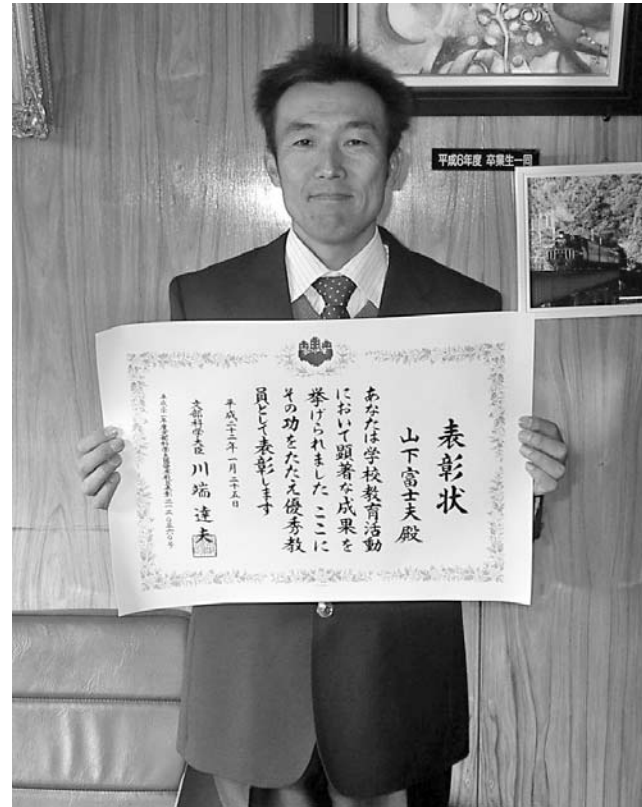 平成6年度 卒業生一同
表彰状
山下富士夫殿
あなたは学校教育活動
において顕著な成果を
挙げられました ここに
その功をたたえ優秀教
員として表彰します
平成二十二年一月二十五日
文部科学大臣 川端達夫